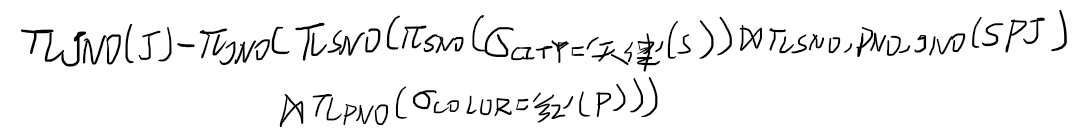 πJNO(J)-πJNO(πSNO(πSNO(σCITY='天津'(S))⋈πSNO,PNO,JNO(SPJ)
⋈πPNO(σCOLOR='红'(P)))